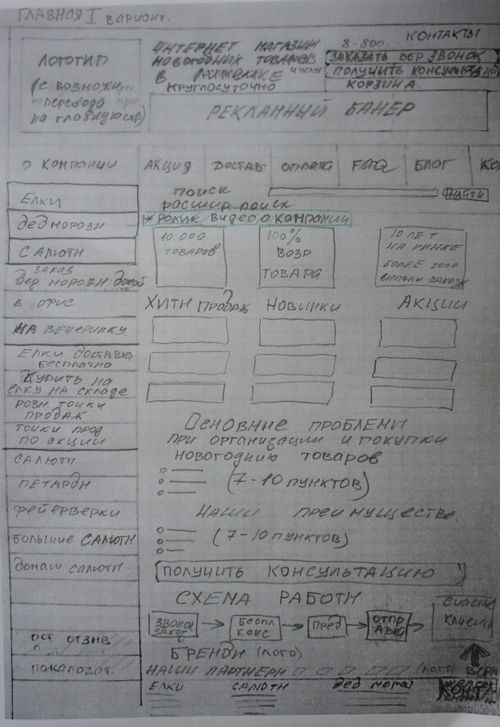 ГЛАВНАЯ I вариант.
КОНТАКТЫ
ЛОГОТИП
(с возможн
перевода
на главную стр)
ИНТЕРНЕТ МАГАЗИН
НОВОГОДНИХ ТОВАРОВ
В
КРУГЛОСУТОЧНО
8-800...
ЗАКАЗАТЬ ОБР ЗВОНОК
ПОЛУЧИТЬ КОНСУЛЬТ
КОРЗИНА
РЕКЛАМНЫЙ БАНЕР
О КОМПАНИИ
АКЦИЯ
ДОСТАВ
ОПЛАТА
FAQ
БЛОГ
КО
ПОИСК
НАЙТИ
РАСШИР ПОИСК
* РОЛИК ВИДЕО О КОМПАНИИ
ЕЛКИ
ДЕД МОРОЗЫ
САЛЮТЫ
ЗАКАЗ
ДЕД МОРОЗЫ ДОМОЙ
В ОФИС
НА ВЕЧЕРИНКУ
ЕЛКИ ДОСТАВКА
БЕСПЛАТНО
КУПИТЬ НА
ЕЛКУ НА СКЛАДЕ
РОЗН ТОЧКИ
ПРОДАЖ
ТОЧКИ ПРОД
ПО АКЦИИ
САЛЮТЫ
ПЕТАРДЫ
ФЕЙЕРВЕРКИ
БОЛЬШИЕ САЛЮТЫ
ДОМАШ САЛЮТЫ
ОСТ ОТЗЫВ
ПОЖАЛОВАТ.
10.000
ТОВАРОВ
100%
ВОЗР
ТОВАРА
10 ЛЕТ
НА РЫНКЕ
БОЛЕЕ 2000
ВЫПОЛН ЗАКАЗОВ
ХИТЫ ПРОДАЖ
НОВИНКИ
АКЦИИ
ОСНОВНЫЕ ПРОБЛЕМЫ
ПРИ ОРГАНИЗАЦИИ И ПОКУПКИ
НОВОГОДНИХ ТОВАРОВ
(7-10 ПУНКТОВ)
НАШИ ПРЕИМУЩЕСТВА
(7-10 ПУНКТОВ)
ПОЛУЧИТЬ КОНСУЛЬТАЦИЮ
СХЕМА РАБОТЫ
ЗВОНОК
ЗАКАЗ
БЕСПЛ
КОНС
ПРЕД
ОТПР
АВКА
СЧАСТЛ
КЛИЕНТ
БРЕНДЫ (ЛОГО)
НАШИ ПАРТНЕРЫ
(ЛОГО)
ВЕРХ
ЕЛКИ
САЛЮТЫ
ДЕД МОРОЗ
КОНТ